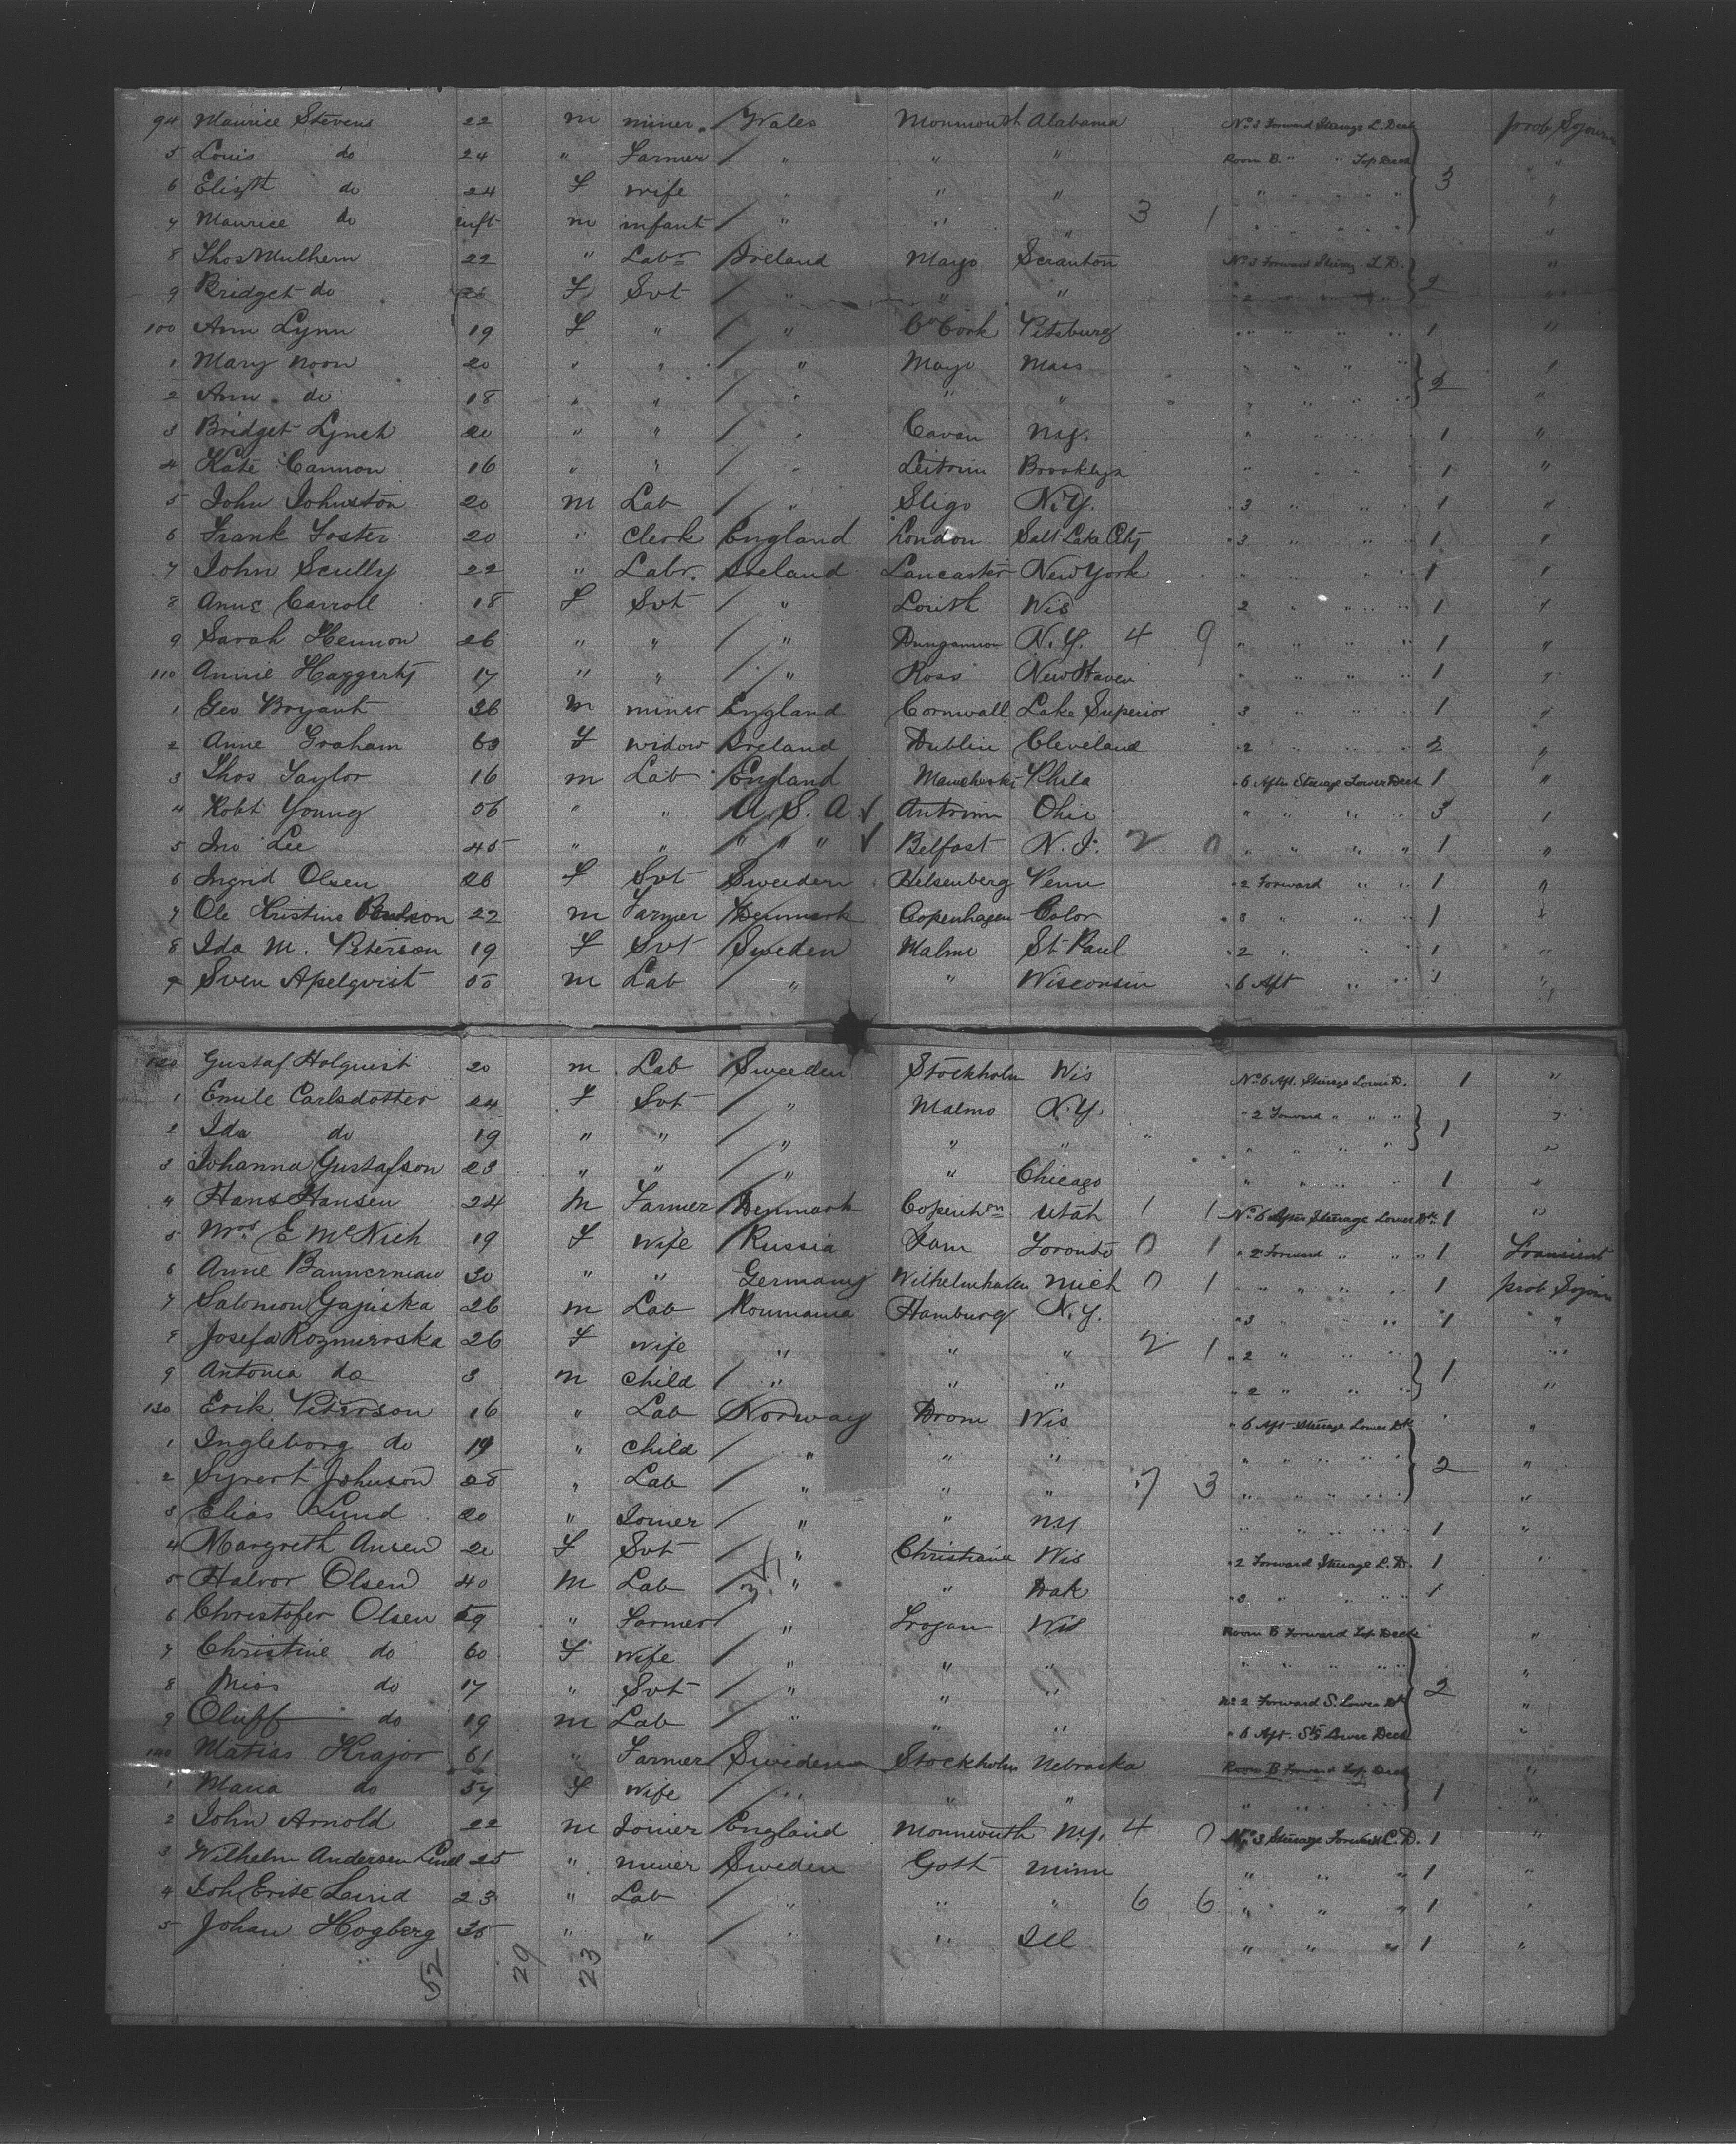 94 Maurice Stevens 22 m miner Wales Monmouth Alabama No 3 Forward Sterage L. Deck prob. Sojourn
5 Louis do 24 " Farmer / " " " Room B. " " Top Deck "
6 Elizth do 24 F wife " " " " " " " 3 "
7 Maurice do inft m infant / " " " 3 1 " " " " "
8 Thos Mulhern 22 " Labr Ireland Mayo Scranton No 3 Forward Sterag L. D. "
9 Bridget do F Svt " " " " 2 2 "
100 Ann Lynn 19 F " / " Co Cork Pitsburg " " " " 1 "
1 Mary Noon 20 " " / " Mayo Mass " " " " "
2 Ann do 18 " " / " " " " " " " 2 "
3 Bridget Lynch 20 " " / " Cavan N.Y. " " " " 1 "
4 Kate Cannon 16 " " / " Leitrim Brooklyn " " " " 1 "
5 John Johnston 20 m Lab / " Sligo N.Y. " 3 " " " 1 "
6 Frank Foster 20 " clerk England London Salt Lake City " 3 " " " 1 "
7 John Scully 22 " Labr. Ireland Lancaster New York " " " " 1 "
8 Anne Carroll 18 F Svt / " Louth Wis 2 " " " 1 "
9 Sarah Hennon 26 " " / " Dungannon N.Y. 4 9 " " " " 1 "
110 Annie Haggerty 17 " " / " Ross New Haven " " " " 1 "
1 Geo Bryant 26 m miner England Cornwall Lake Superior 3 " " " 1 "
2 Anne Graham 63 F widow Ireland Dublin Cleveland " 2 " " " 2 "
3 Thos Taylor 16 m Lab England Manchester Phila " 6 After Sterage Lower Deck 1 "
4 Robt Young 56 " " U. S. A ✓ Antrim Ohio " " " " 3 "
5 Jno Lee 45 " " " " " ✓ Belfast N. J. 2 0 " " " " 1 "
6 Ingrid Olsen 26 F Svt Sweeden Helsenberg Penn " 2 Forward " " 1 "
7 Ole Kristine 22 m Farmer Denmark Copenhagen Color " 3 " " " 1 "
8 Ida M. Peterson 19 F Svt Sweden Malmo St Paul " 2 " " " 1 "
9 Sven Apelqvist 55 m Lab / " " Wisconsin " 6 Aft " " 1 "
120 Gustaf Holquist 20 m Lab Sweeden Stockholm Wis No 6 Aft. Sterage Lower D. 1 "
1 Emile Carlsdotter 24 F Svt / " Malmo N.Y. " 2 Forward " " " "
2 Ida do 19 " " / " " " " " " " 1 "
3 Johanna Gustafson 23 " " / " " Chicago " " " " 1 "
4 Hans Hansen 24 M Farmer Denmark Copenhn Utah 1 1 No 6 After Sterage Lower Dk 1 "
5 Mrs E McNich 19 F wife Russia Toronto 0 1 " 2 Forward " " " 1 Transient
6 Anne Bannerman 30 " " Germany Wilhelmhaven Mich 0 1 " " " " 1 prob Sojourn
7 Salomon Gajuska 26 m Lab Roumania Hamburg N.Y. " 3 " " " 1 "
8 Josefa Rozmieroska 26 F wife " " " 2 1 " 2 " " " "
9 Antonia do 3 m child / " " " " 2 " " " 1 "
130 Erik Peterson 16 " Lab Norway Drom Wis " 6 Aft Sterage Lower Dk "
1 Ingleborg do 19 " child / " " " " " " " "
2 Syvert Johnson 28 " Lab / " " " 7 3 " " " " 2 "
3 Elias Lund 20 " Joiner / " " NY " " " " 1 "
4 Margreth Ansen 20 F Svt / " Christiania Wis " 2 Forward Sterage L. D. 1 "
5 Halvor Olsen 40 M Lab / " " Dak " 3 " " " 1
6 Christofer Olsen 59 " Farmer / " Trogan Wis Room B Forward Top Deck "
7 Christine do 60 F Wife / " " " " " " " "
8 Miss do 17 " Svt / " " " No 2 Forward S. Lower Dk 2 "
9 Oluff do 19 m Lab / " " " " 6 Aft. Stg Lower Deck "
140 Matias Krajor 61 " Farmer Sweden Stockholm Nebraska Room B Forward Top Deck "
1 Maria do 57 F Wife / " " " " " " 1 "
2 John Arnold 22 m Joiner England Monmouth NY. 4 0 No 3 Sterage Forward L. D. 1 "
3 Wilhelm Andersen Lind 25 " miner Sweden Gott Minn " " " 1 "
4 Joh Erite Lind 23 " Lab / " " " 6 6 " " " 1 "
5 Johan Hogberg 35 " " / " " Ill " " " 1 "
52 29 23